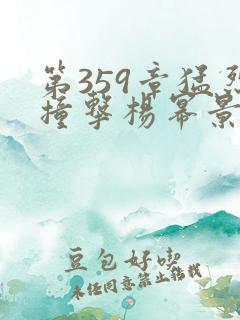 第359章猛烈
撞擊楊幂景
豆包好喫
未经同意禁止转载